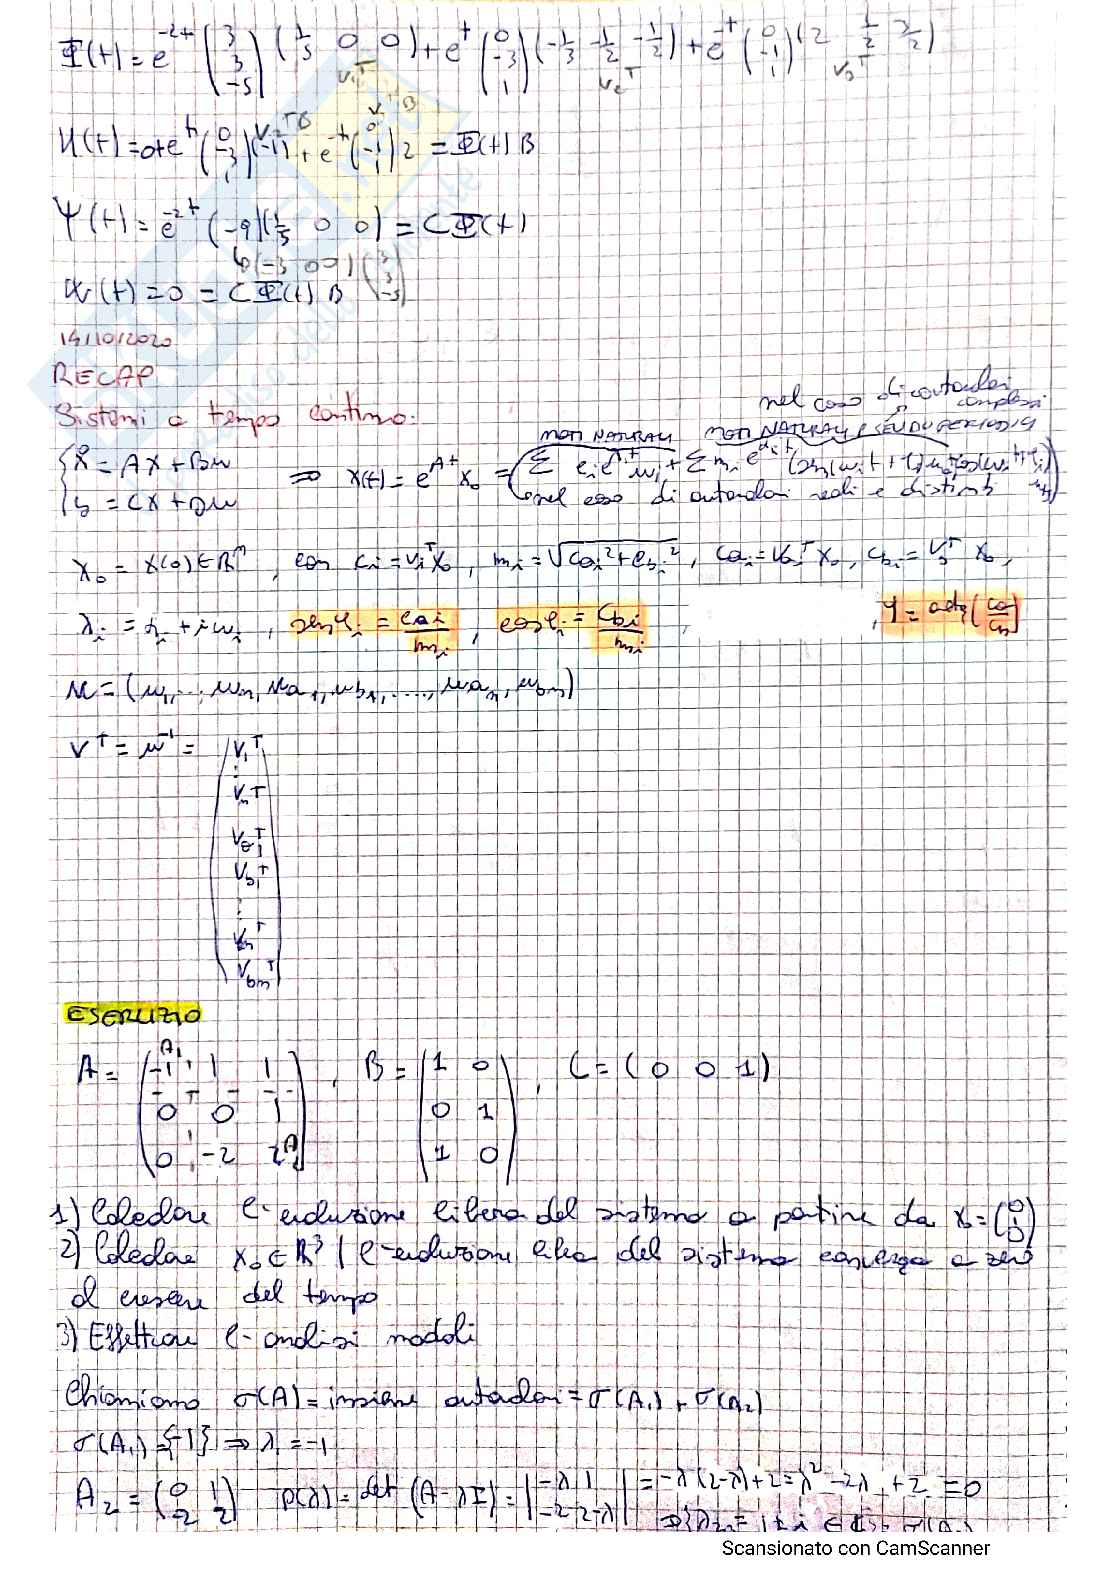 Φ(t) = e^{-2t} (3 3 -5) (1/3 0 0) + e^t (0 -3 1) (-1/3 -1/2 -1/2) + e^{-t} (0 -1 1) (2 1/2 3/2)
v₁ᵀ v₂ᵀ v₃ᵀ
H(t) = 0 + e^t (0 -3 1) (-1) + e^{-t} (0 -1 1) 2 = Φ(t) B
Ψ(t) = e^{-2t} (-9) (1/3 0 0) = CΦ(t)
(-3 0 0) (3 3 -5)
(t) = 0 = CΦ(t) B
14/10/2020
RECAP
Sistemi a tempo continuo:
nel caso di autovalori complessi
MOTI NATURALI MOTI NATURALI PSEUDOPERIODICI
{ẋ = Ax + Bu
{y = Cx + Du
⇒ x(t) = e^{At} x₀ = Σ cᵢ e^{λᵢt} uᵢ + Σ mᵢ e^{αᵢt} (sen(ωᵢt + φᵢ) uₐᵢ + cos(ωᵢt + φᵢ) u_bᵢ)
nel caso di autovalori reali e distinti
x₀ = x(0) ∈ ℝⁿ, con cᵢ = vᵢᵀx₀, mᵢ = √(caᵢ² + cbᵢ²), caᵢ = vaᵢᵀ x₀, cbᵢ = vbᵢᵀ x₀,
λᵢ = αᵢ + iωᵢ, senφᵢ = caᵢ/mᵢ, cosφᵢ = cbᵢ/mᵢ, , φ = arctg(ca/cb)
u = (u₁, ..., uₙ, ua₁, ub₁, ...., uaₙ, ubₙ)
vᵀ = u⁻¹ =
(v₁ᵀ
⋮
vₙᵀ
va₁ᵀ
vb₁ᵀ
⋮
vaₙᵀ
vbₙᵀ)
ESERCIZIO
A = (-1 1 1 , B = (1 0 , C = (0 0 1)
0 0 1 0 1
0 -2 2) 1 0)
A₁ A₂
1) Calcolare l'evoluzione libera del sistema a partire da x₀ = (0 1 0)
2) Calcolare x₀ ∈ ℝ³ | l'evoluzione libera del sistema converga a zero
al crescere del tempo
3) Effettuare l'analisi modale
Chiamiamo σ(A) = insieme autovalori = σ(A₁) + σ(A₂)
σ(A₁) = {-1} ⇒ λ₁ = -1
A₂ = (0 1 -2 2) p(λ) = det (A - λI) = |-λ 1 -2 2-λ| = -λ(2-λ) + 2 = λ² - 2λ + 2 = 0
Scansionato con CamScanner